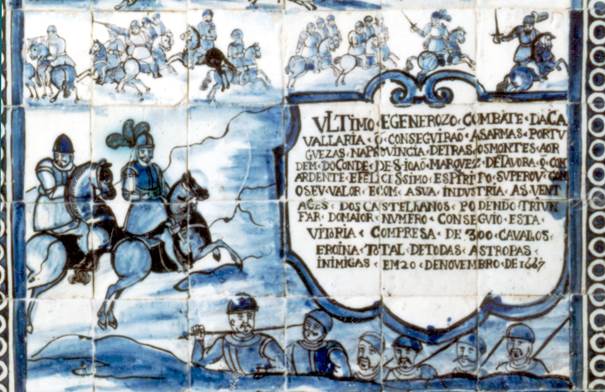 VLTIMO · EGENEROZO · CUMBATE · DACA
VALLARIA · Q · CONSEGVIRAO · ASARMAS · PORTV
GVEZAS · NAPROVINCIA · DETRAS · OSMONTES · AOR
DEM · DOCONDE · DE S · IOAÕ · MARQVEZ · DETAVORA · Q · COM
ARDENTE · EFELICISSIMO · ESPIRITO · SVPEROV · COM
OSEV · VALOR · ECOM · ASUA · INDVSTRIA · AS VENT
AGES · DOS CASTELHANOS · PODENDO TRIVN
FAR · DOMAIOR · NVMERO · CONSEGVIO · ESTA ·
VITORIA · COMPRESA · DE · 300 · CAVALOS ·
EROINA · TOTAL · DETODAS · ASTROPAS ·
INIMIGAS · EM 20 · DENOVEMBRO · DE · 1667